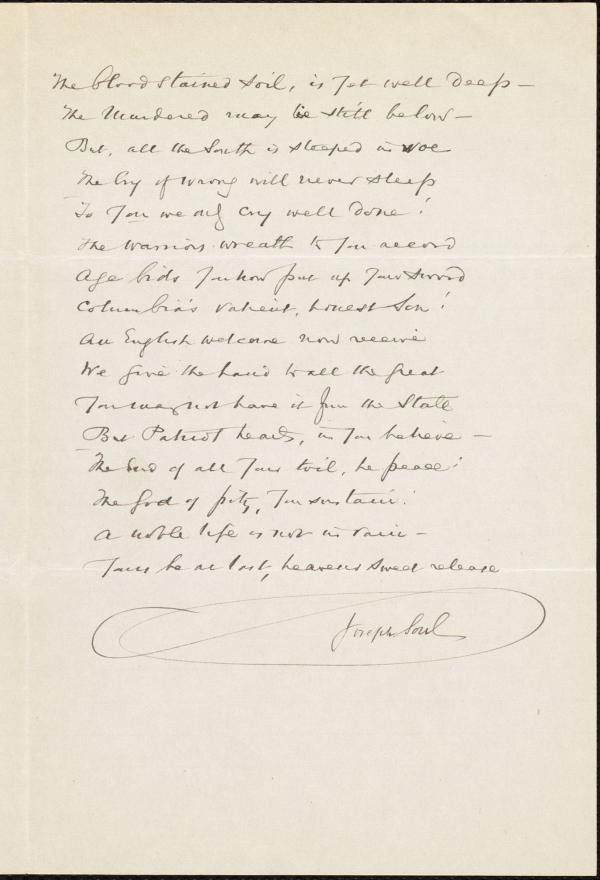 The blood stained soil, is yet well deep —
The Murdered may lie still below —
But, all the South is steeped in woe
The Cry of wrong will never sleep
To You we only cry well done!
The warriors wreath to You accord
Age bids You now put up Your sword
Columbia's valient, honest Son!
An English welcome now receive
We give the hand to all the great
You may not have it from the State
But Patriot hearts, in You believe —
The End of all Your toil, be peace!
The God of pity, You sustain!
A noble life is not in vain —
Yours be at last, heavens sweet release
Joseph Soul